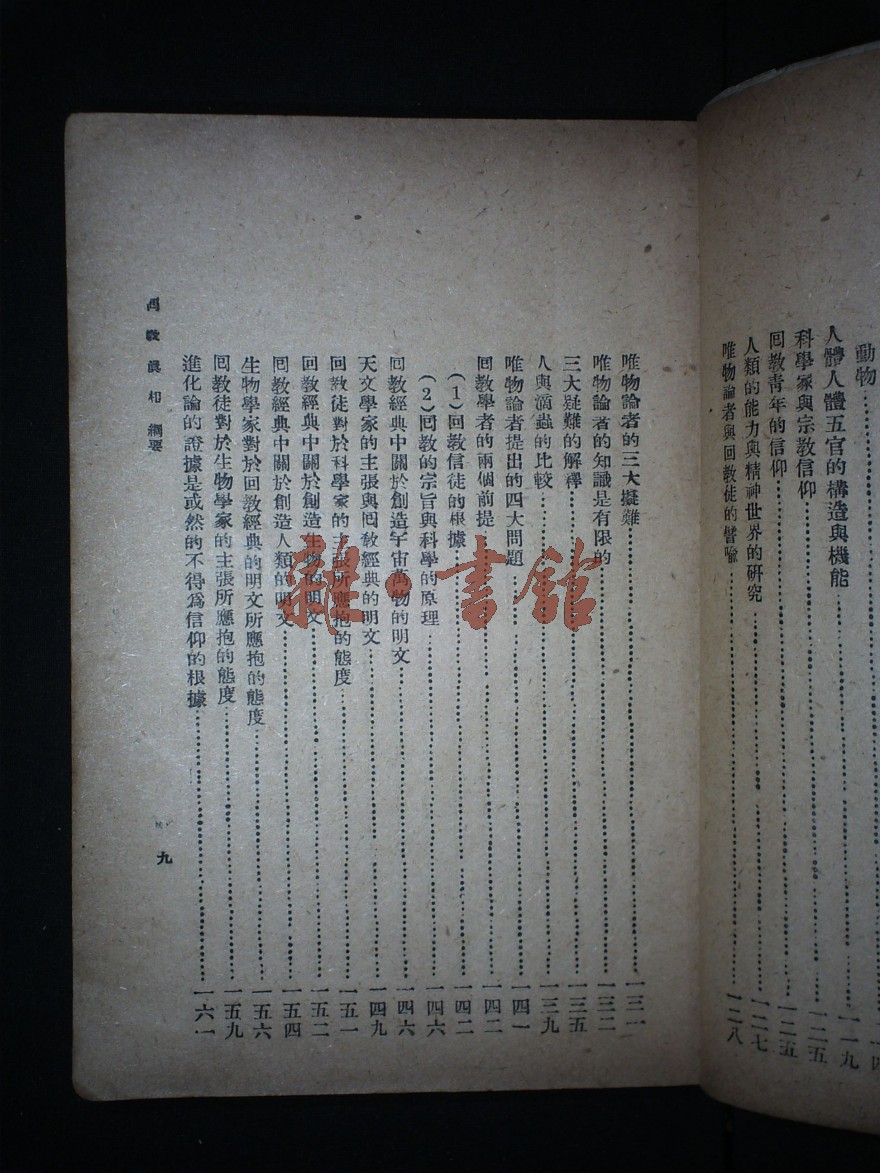 動物
人體人體五官的構造與機能 一一九
科學家與宗教信仰 一二五
回教青年的信仰 一二五
人類的能力與精神世界的研究 一二七
唯物論者與回教徒的譬喻 一二八
唯物論者的三大疑難 一三一
唯物論者的知識是有限的 一三二
三大疑難的解釋 一三五
人與滴蟲的比較 一三九
唯物論者提出的四大問題 一四一
回教學者的兩個前提 一四二
(1)回教信徒的根據 一四二
(2)回教的宗旨與科學的原理 一四六
回教經典中關於創造宇宙萬物的明文 一四六
天文學家的主張與回教經典的明文 一四九
回教徒對於科學家的主張所應抱的態度 一五一
回教經典中關於創造生物的明文 一五二
回教經典中關於創造人類的明文 一五四
生物學家對於回教經典的明文所應抱的態度 一五六
回教徒對於生物學家的主張所應抱的態度 一五九
進化論的證據是或然的不得爲信仰的根據 一六一
回教眞相 綱要
九
雜·書館